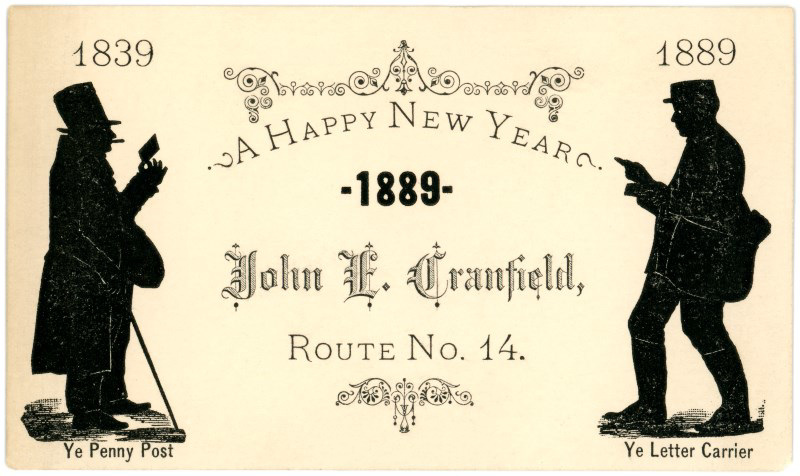 1839
1889
A Happy New Year
-1889-
John E. Cranfield,
Route No. 14.
Ye Penny Post
Ye Letter Carrier